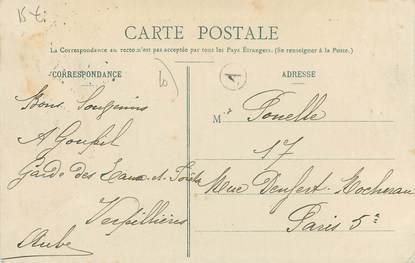 CARTE POSTALE
La Correspondance au recto n'est pas acceptée par tous les Pays Étrangers. (Se renseigner à la Poste.)
CORRESPONDANCE
Bons Souvenirs
A Goupil
Garde des Eaux et Forêts
Verpillières
Aube
1
ADRESSE
M Fonelle
17
Rue Denfert-Rochereau
Paris 5e